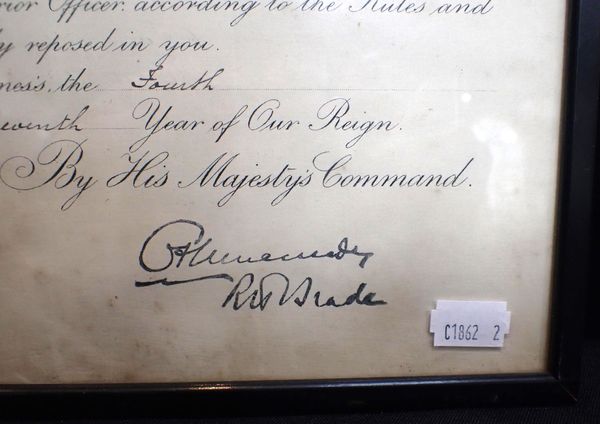 rior Officer. according to the Rules and
ly reposed in you.
ness, the Fourth
eventh Year of Our Reign.
By His Majesty's Command.
R H Brade
C1862 2